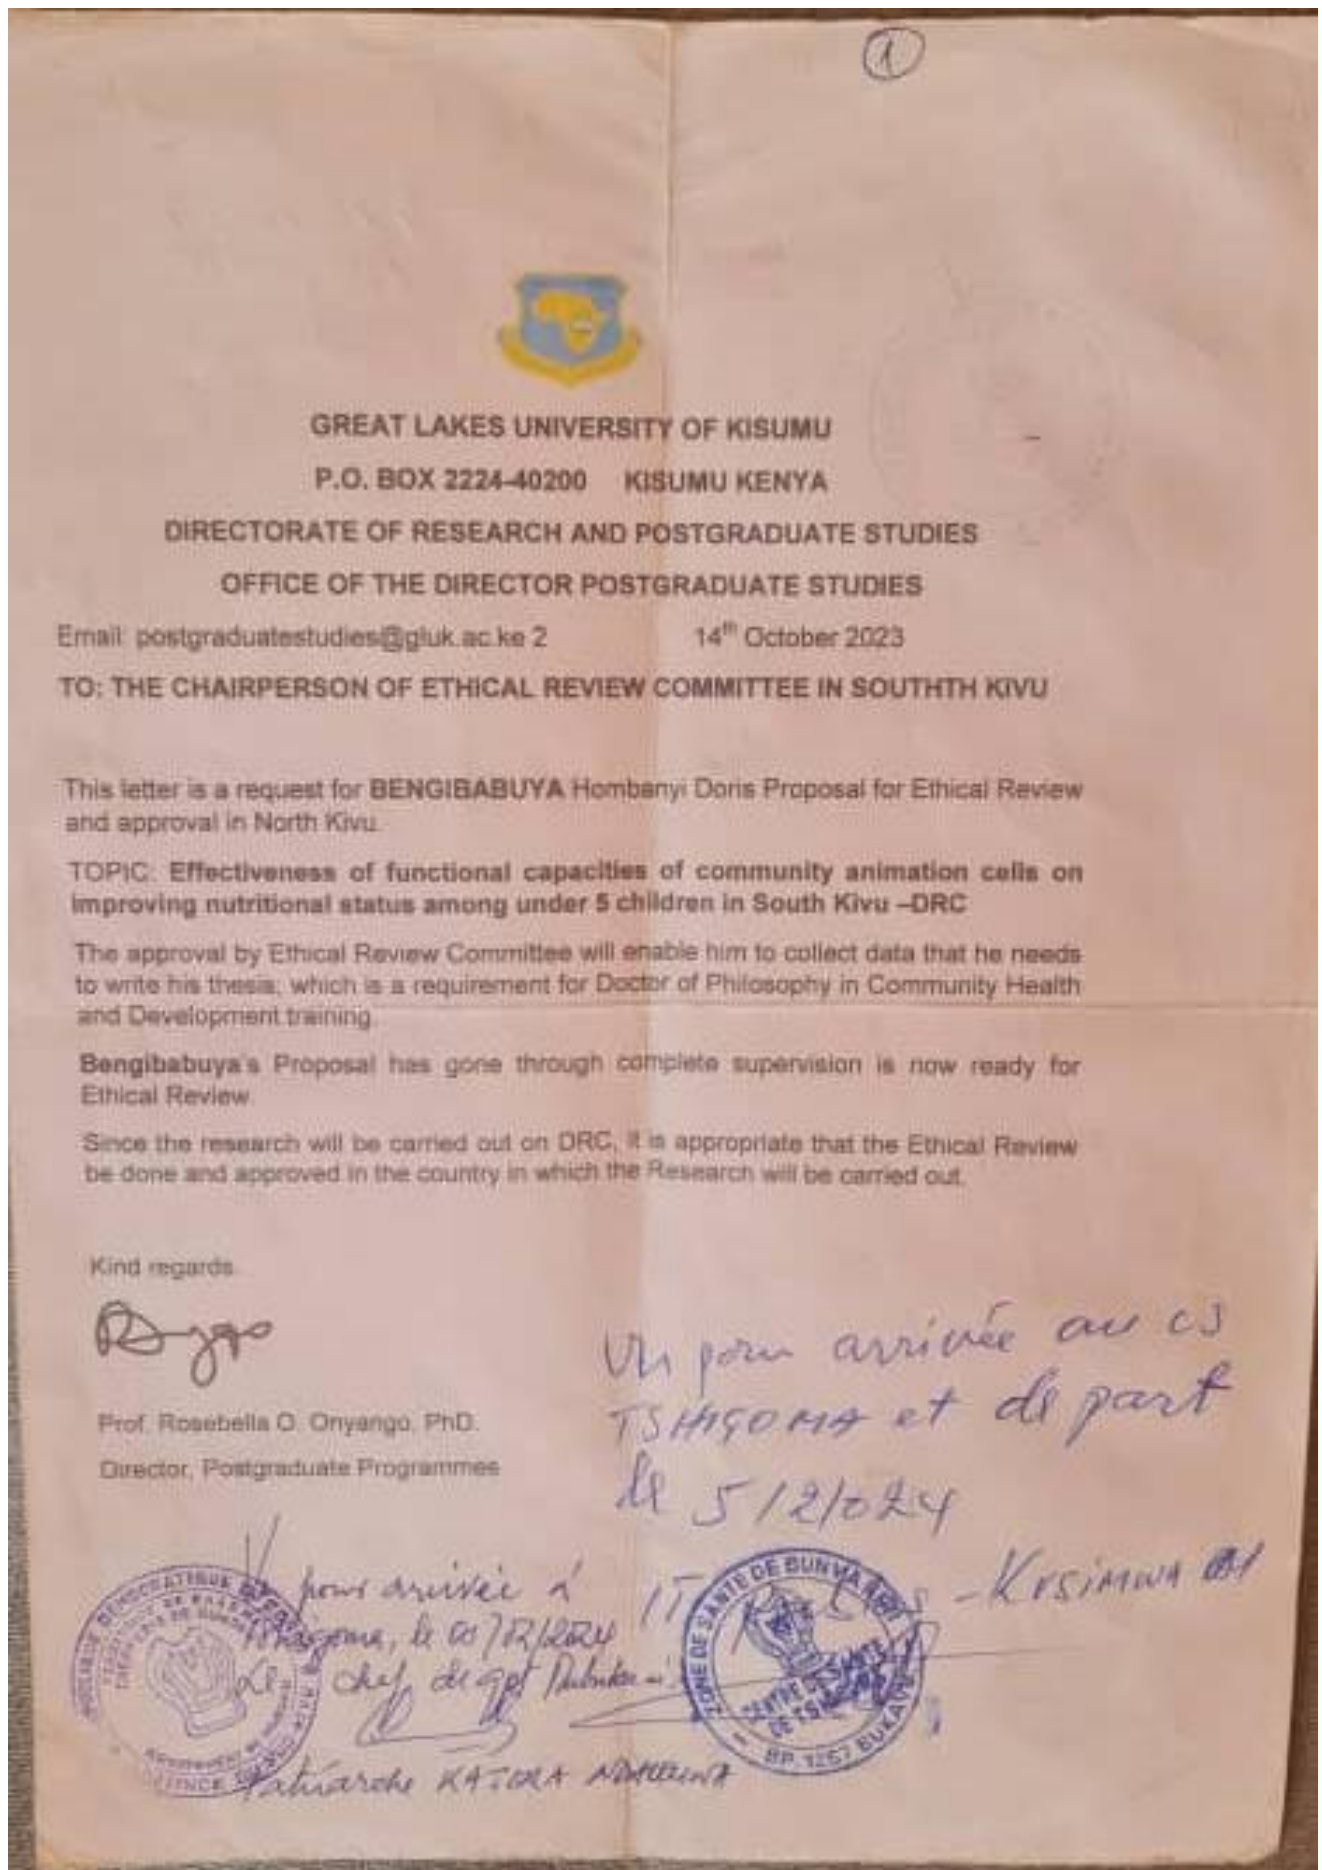 1
GREAT LAKES UNIVERSITY OF KISUMU
P.O. BOX 2224-40200 KISUMU KENYA
DIRECTORATE OF RESEARCH AND POSTGRADUATE STUDIES
OFFICE OF THE DIRECTOR POSTGRADUATE STUDIES
Email: postgraduatestudies@gluk.ac.ke 2 14th October 2023
TO: THE CHAIRPERSON OF ETHICAL REVIEW COMMITTEE IN SOUTHTH KIVU
This letter is a request for BENGIBABUYA Hombanyi Doris Proposal for Ethical Review
and approval in North Kivu.
TOPIC: Effectiveness of functional capacities of community animation cells on
improving nutritional status among under 5 children in South Kivu –DRC
The approval by Ethical Review Committee will enable him to collect data that he needs
to write his thesis, which is a requirement for Doctor of Philosophy in Community Health
and Development training.
Bengibabuya's Proposal has gone through complete supervision is now ready for
Ethical Review.
Since the research will be carried out on DRC, it is appropriate that the Ethical Review
be done and approved in the country in which the Research will be carried out.
Kind regards.
Prof. Rosebella O. Onyango, PhD.
Director, Postgraduate Programmes
Vu pour arrivée au CS
TSHIGOMA et départ
le 5/2/024
IT
pour arrivée à
Le chef de gpt
Patriarche KATORA
ZONE DE SANTE DE BUNYAKIRI
CENTRE DE SANTE
BP. 1267 BUKAVU